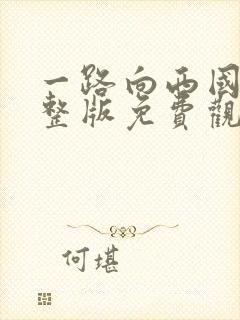 一路向西國
整版免費觀
何堪